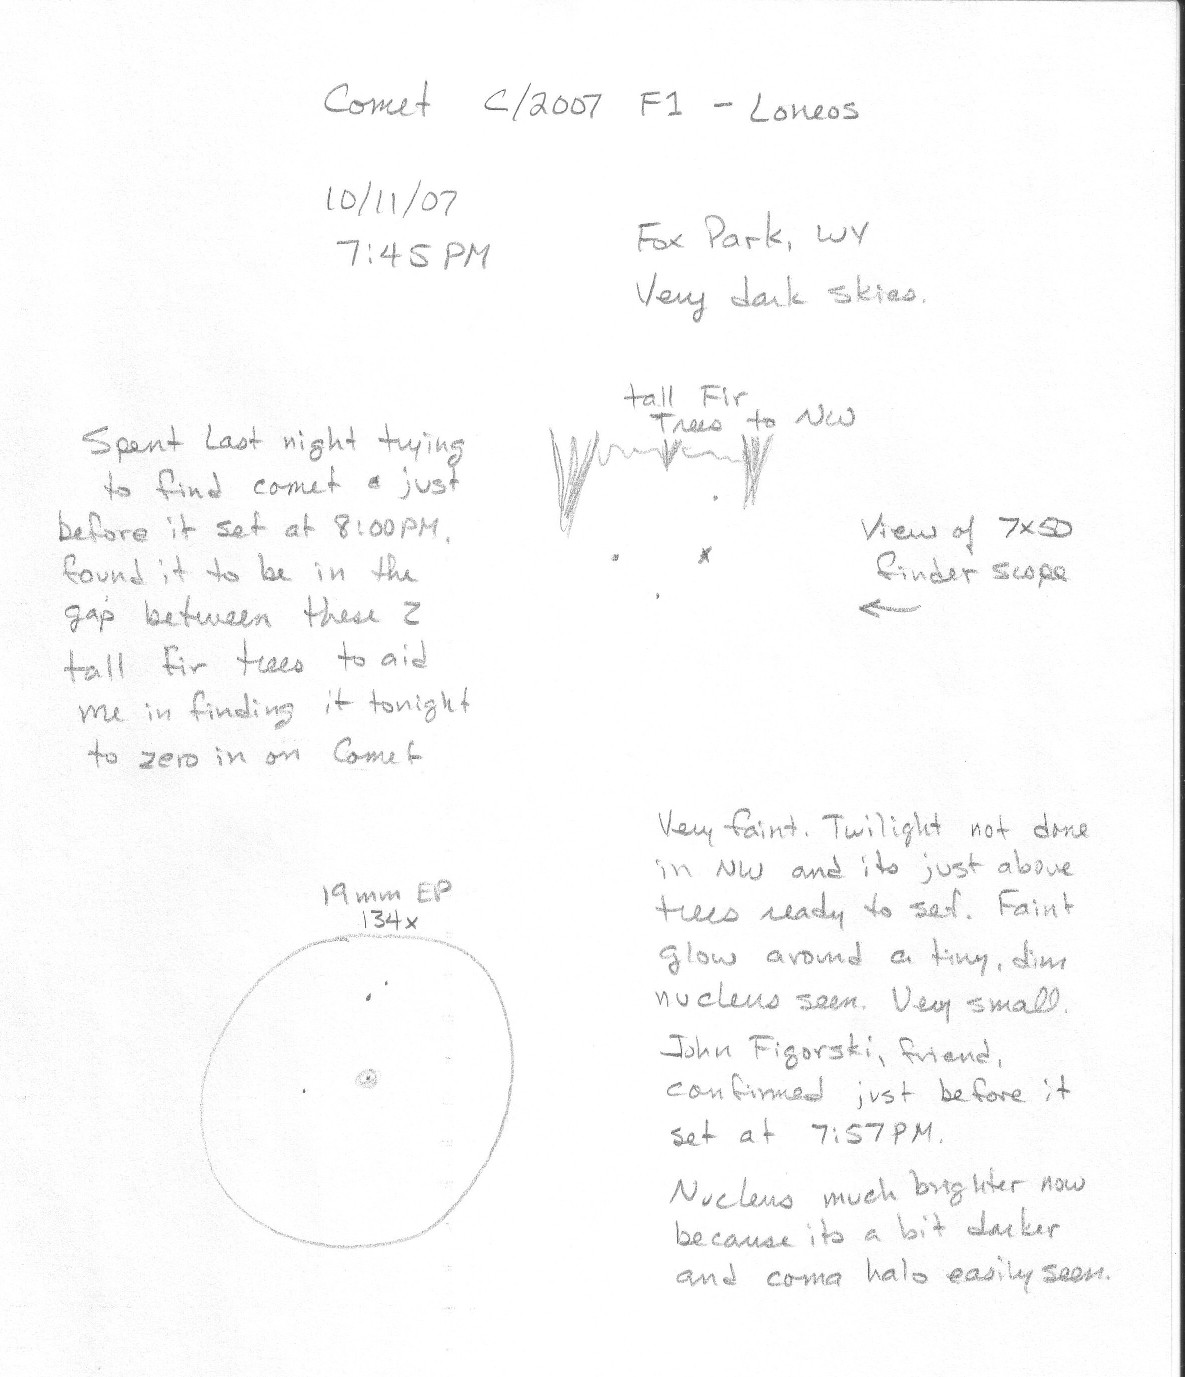 Comet C/2007 F1 - Loneos
10/11/07
7:45 PM
Fox Park, WY
Very dark skies.
tall Fir
Trees to NW
Spent Last night trying
to find comet & just
before it set at 8:00PM,
found it to be in the
gap between these 2
tall fir trees to aid
me in finding it tonight
to zero in on Comet
View of 7x50
finder scope
←
Very faint. Twilight not done
in NW and its just above
trees ready to set. Faint
glow around a tiny, dim
nucleus seen. Very small.
John Figorski, friend,
confirmed just before it
set at 7:57PM.
Nucleus much brighter now
because its a bit darker
and coma halo easily seen.
19mm EP
134x